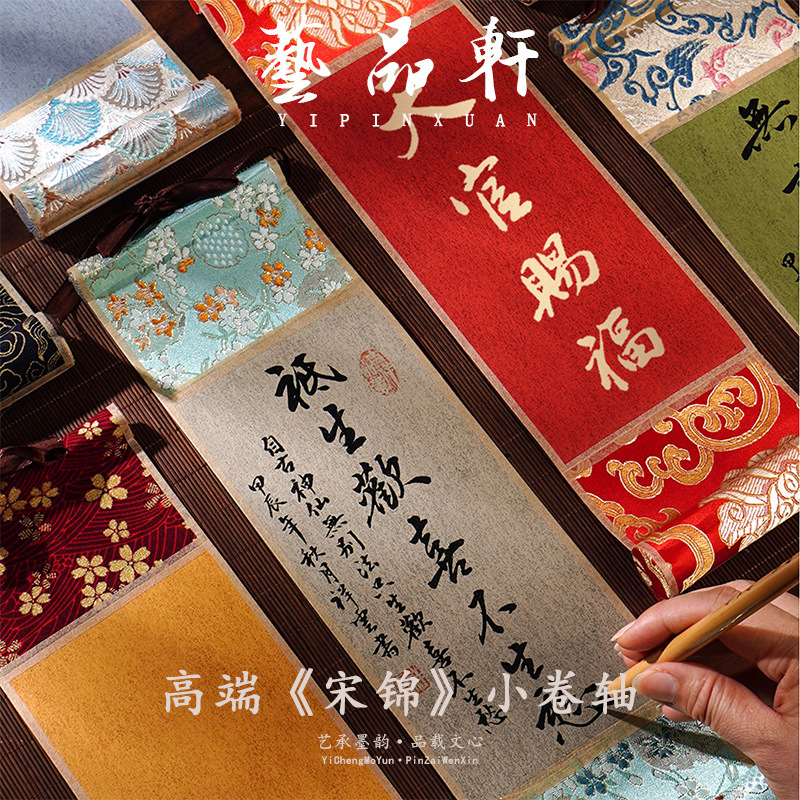 藝品軒
YIPINXUAN
天官賜福
無
甲
祇生歡喜不生愁
自古神仙無別法只生歡喜不生愁
甲辰年秋月祥雲書
高端《宋锦》小卷轴
艺承墨韵·品载文心
YiChengMoYun·PinZaiWenXin